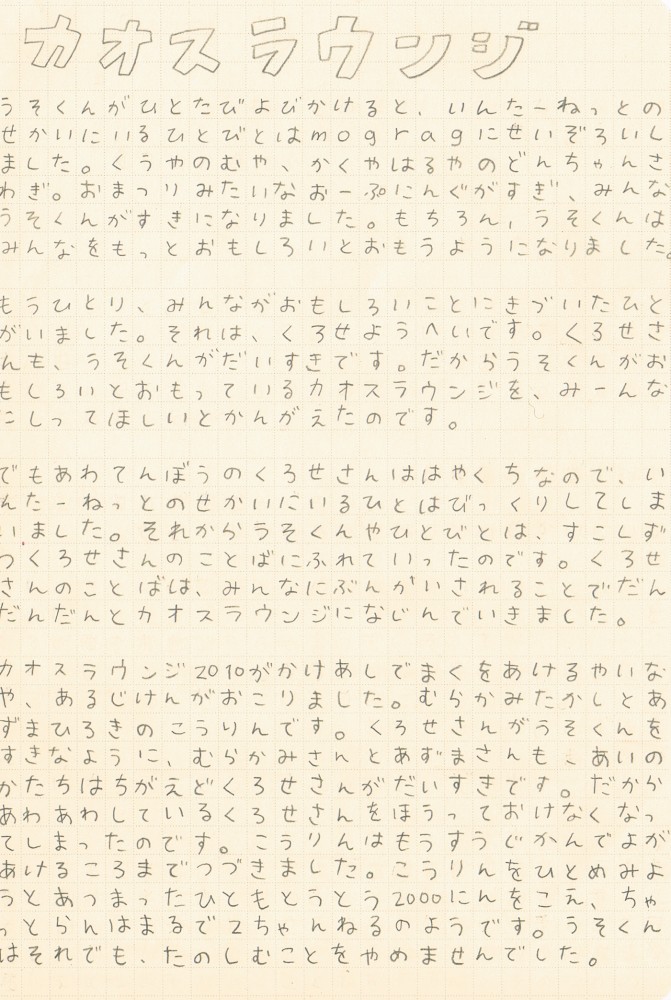 カオスラウンジ
うそくんがひとたびよびかけると、いんたーねっとの
せかいにいるひとびとはmogragにせいぞろいし
ました。くうやのむや、かくやはるやのどんちゃんさ
わぎ。おまつりみたいなおーぷにんぐがすぎ、みんな
うそくんがすきになりました。もちろん、うそくんは
みんなをもっとおもしろいとおもうようになりました。
もうひとり、みんながおもしろいことにきづいたひと
がいました。それは、くろせようへいです。くろせさ
んも、うそくんがだいすきです。だからうそくんがお
もしろいとおもっているカオスラウンジを、みーんな
にしってほしいとかんがえたのです。
でもあわてんぼうのくろせさんははやくちなので、い
んたーねっとのせかいにいるひとはびっくりしてしま
いました。それからうそくんやひとびとは、すこしず
つくろせさんのことばにふれていったのです。くろせ
さんのことばは、みんなにぶんかいされることでだん
だんだんとカオスラウンジになじんでいきました。
カオスラウンジ2010がかけあしでまくをあけるやいな
や、あるじけんがおこりました。むらかみたかしとあ
ずまひろきのこうりんです。くろせさんがうそくんを
すきなように、むらかみさんとあずまさんも、あいの
かたちはちがえどくろせさんがだいすきです。だから
あわあわしているくろせさんをほうっておけなくなっ
てしまったのです。こうりんはもうすうじかんでよが
あけるころまでつづきました。こうりんをひとめみよ
うとあつまったひともとうとう2000にんをこえ、ちゃ
っとらんはまるで2ちゃんねるのようです。うそくん
はそれでも、たのしむことをやめませんでした。